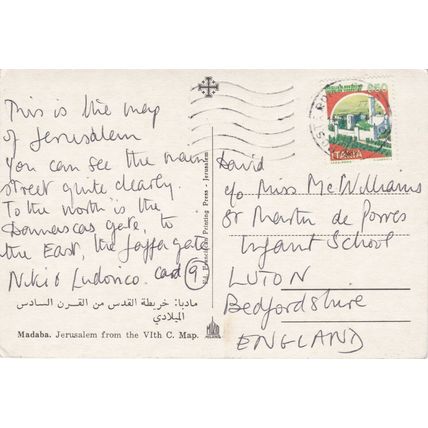 This is the map
of Jerusalem
You can see the main
street quite clearly.
To the north is the
Damascus gate, to
the East, the Jaffa gate
Niki & Ludovico. card 9
مادبا: خريطة القدس من القرن السادس
الميلادي
Madaba. Jerusalem from the VIth C. Map.
Franciscan Printing Press - Jerusalem
650
ITALIA
David
c/o Miss McWilliams
St Martin de Porres
Infant School
LUTON
Bedfordshire
ENGLAND